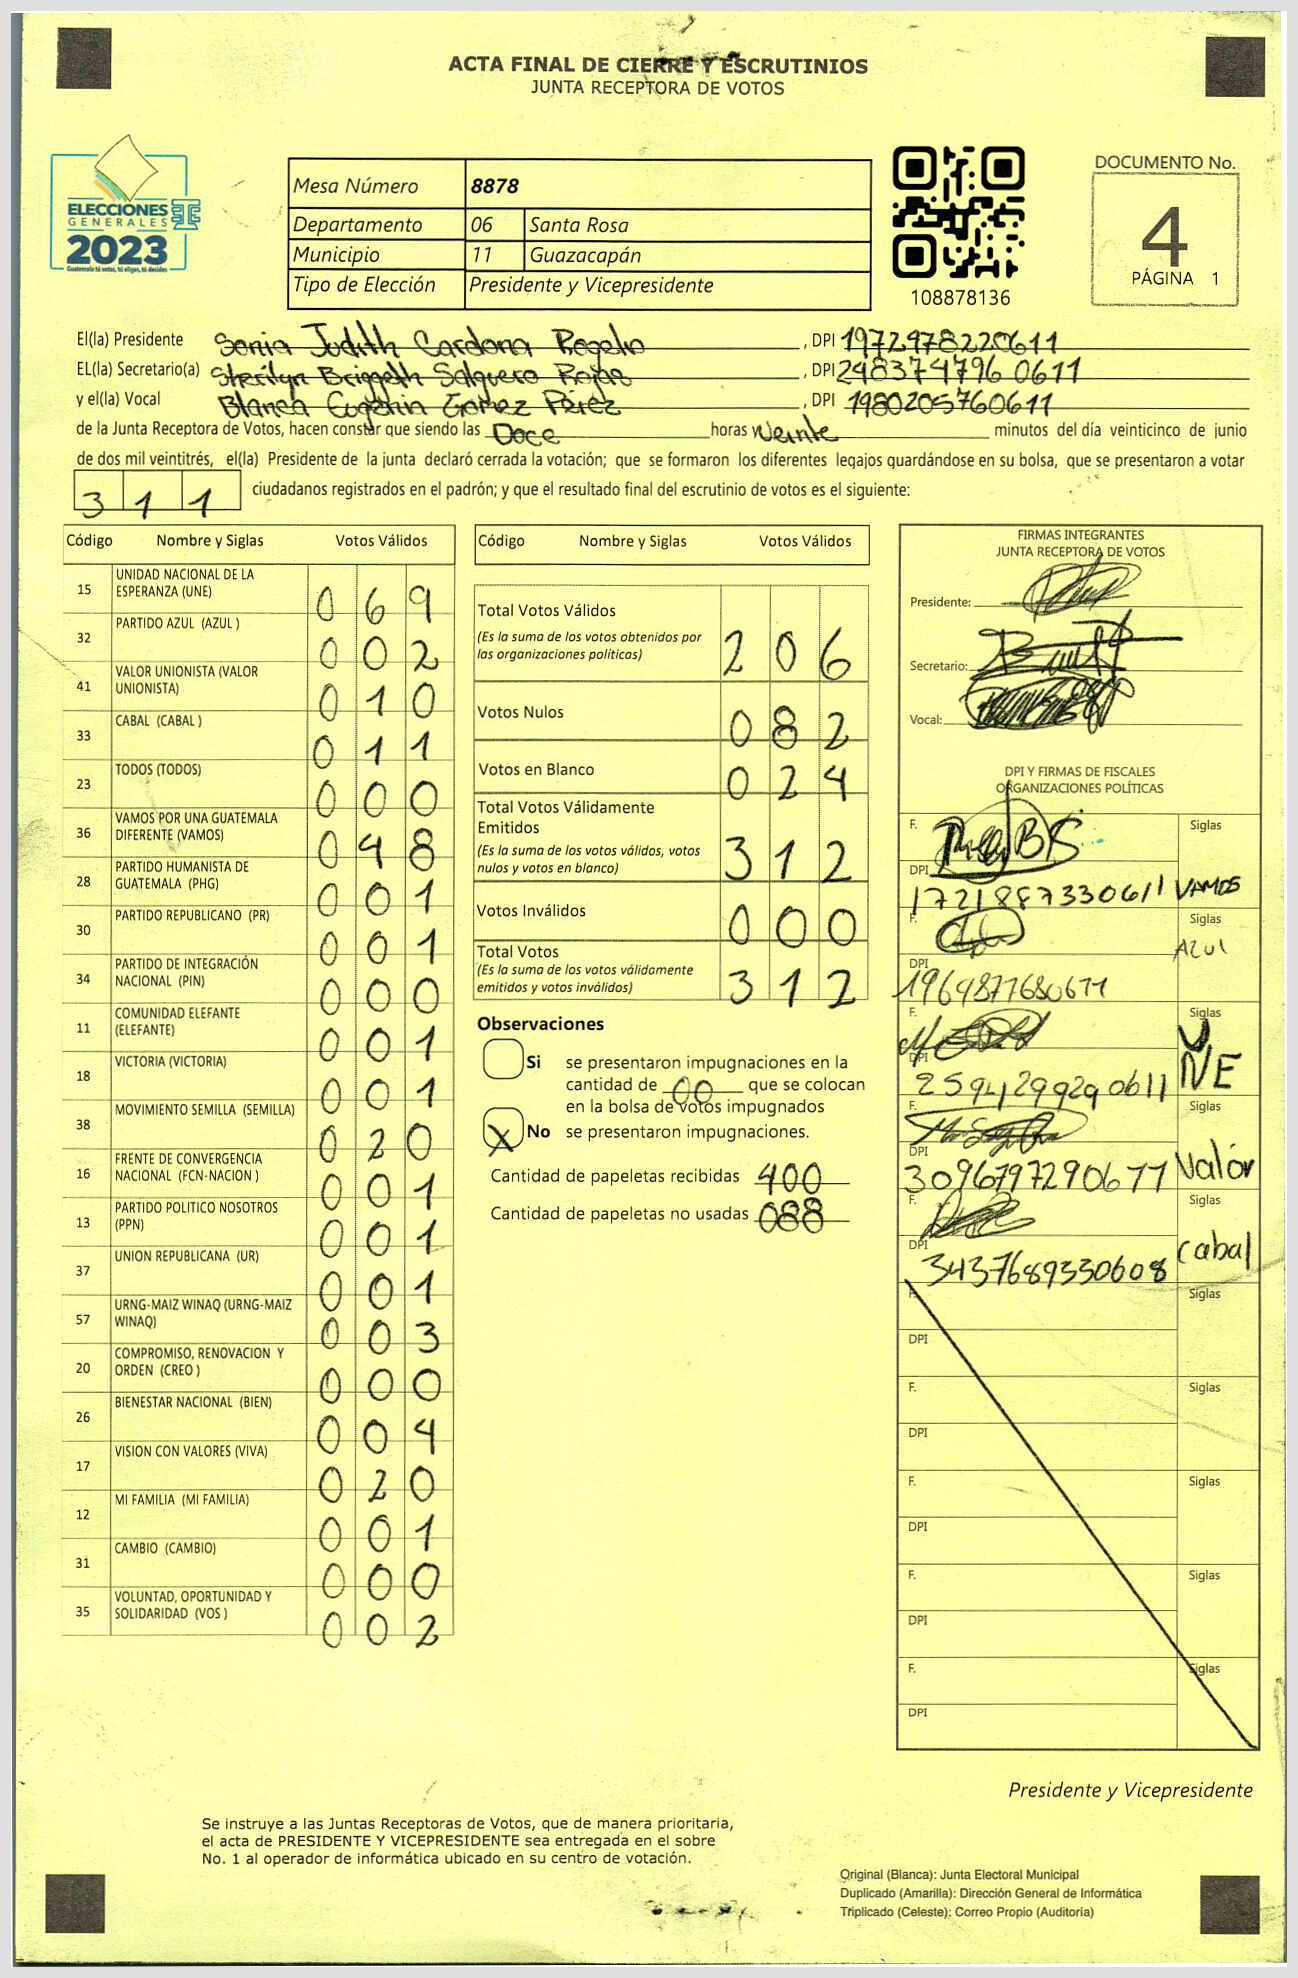 ACTA FINAL DE CIERRE Y ESCRUTINIOS
JUNTA RECEPTORA DE VOTOS
ELECCIONES
GENERALES
2023
Guatemala tú votas, tú eliges, tú decides
Mesa Número 8878
Departamento 06 Santa Rosa
Municipio 11 Guazacapán
Tipo de Elección Presidente y Vicepresidente
108878136
DOCUMENTO No.
4
PÁGINA 1
El(la) Presidente Sonia Judith Cardona Rogelio, DPI 1972978220611
EL(la) Secretario(a) Sherilyn Briggeth Salguero Rojas, DPI 248374796 0611
y el(la) Vocal Blanca Eugenia Gómez Pérez, DPI 1980205760611
de la Junta Receptora de Votos, hacen constar que siendo las Doce horas Veinte minutos del día veinticinco de junio
de dos mil veintitrés, el(la) Presidente de la junta declaró cerrada la votación; que se formaron los diferentes legajos guardándose en su bolsa, que se presentaron a votar
311 ciudadanos registrados en el padrón; y que el resultado final del escrutinio de votos es el siguiente:
Código Nombre y Siglas Votos Válidos
15 UNIDAD NACIONAL DE LA ESPERANZA (UNE) 069
32 PARTIDO AZUL (AZUL ) 002
41 VALOR UNIONISTA (VALOR UNIONISTA) 010
33 CABAL (CABAL ) 011
23 TODOS (TODOS) 000
36 VAMOS POR UNA GUATEMALA DIFERENTE (VAMOS) 048
28 PARTIDO HUMANISTA DE GUATEMALA (PHG) 001
30 PARTIDO REPUBLICANO (PR) 001
34 PARTIDO DE INTEGRACIÓN NACIONAL (PIN) 000
11 COMUNIDAD ELEFANTE (ELEFANTE) 001
18 VICTORIA (VICTORIA) 001
38 MOVIMIENTO SEMILLA (SEMILLA) 020
16 FRENTE DE CONVERGENCIA NACIONAL (FCN-NACION ) 001
13 PARTIDO POLITICO NOSOTROS (PPN) 001
37 UNION REPUBLICANA (UR) 001
57 URNG-MAIZ WINAQ (URNG-MAIZ WINAQ) 003
20 COMPROMISO, RENOVACION Y ORDEN (CREO ) 000
26 BIENESTAR NACIONAL (BIEN) 004
17 VISION CON VALORES (VIVA) 020
12 MI FAMILIA (MI FAMILIA) 001
31 CAMBIO (CAMBIO) 000
35 VOLUNTAD, OPORTUNIDAD Y SOLIDARIDAD (VOS ) 002
Código Nombre y Siglas Votos Válidos
Total Votos Válidos
(Es la suma de los votos obtenidos por
las organizaciones políticas) 206
Votos Nulos 082
Votos en Blanco 024
Total Votos Válidamente
Emitidos
(Es la suma de los votos válidos, votos
nulos y votos en blanco) 312
Votos Inválidos 000
Total Votos
(Es la suma de los votos válidamente
emitidos y votos inválidos) 312
Observaciones
Si se presentaron impugnaciones en la
cantidad de 00 que se colocan
en la bolsa de votos impugnados
X No se presentaron impugnaciones.
Cantidad de papeletas recibidas 400
Cantidad de papeletas no usadas 088
FIRMAS INTEGRANTES
JUNTA RECEPTORA DE VOTOS
Presidente:
Secretario:
Vocal:
DPI Y FIRMAS DE FISCALES
ORGANIZACIONES POLÍTICAS
F. Siglas
DPI 1721887330611 VAMOS
F. Siglas
DPI 1964877680611 Azul
F. Siglas
DPI 2594129929 0611 UNE
F. Siglas
DPI 3096797290611 Valor
F. Siglas
DPI 3437689330608 Cabal
F. Siglas
DPI
F. Siglas
DPI
F. Siglas
DPI
F. Siglas
DPI
F. Siglas
DPI
Presidente y Vicepresidente
Se instruye a las Juntas Receptoras de Votos, que de manera prioritaria,
el acta de PRESIDENTE Y VICEPRESIDENTE sea entregada en el sobre
No. 1 al operador de informática ubicado en su centro de votación.
Original (Blanca): Junta Electoral Municipal
Duplicado (Amarilla): Dirección General de Informática
Triplicado (Celeste): Correo Propio (Auditoría)